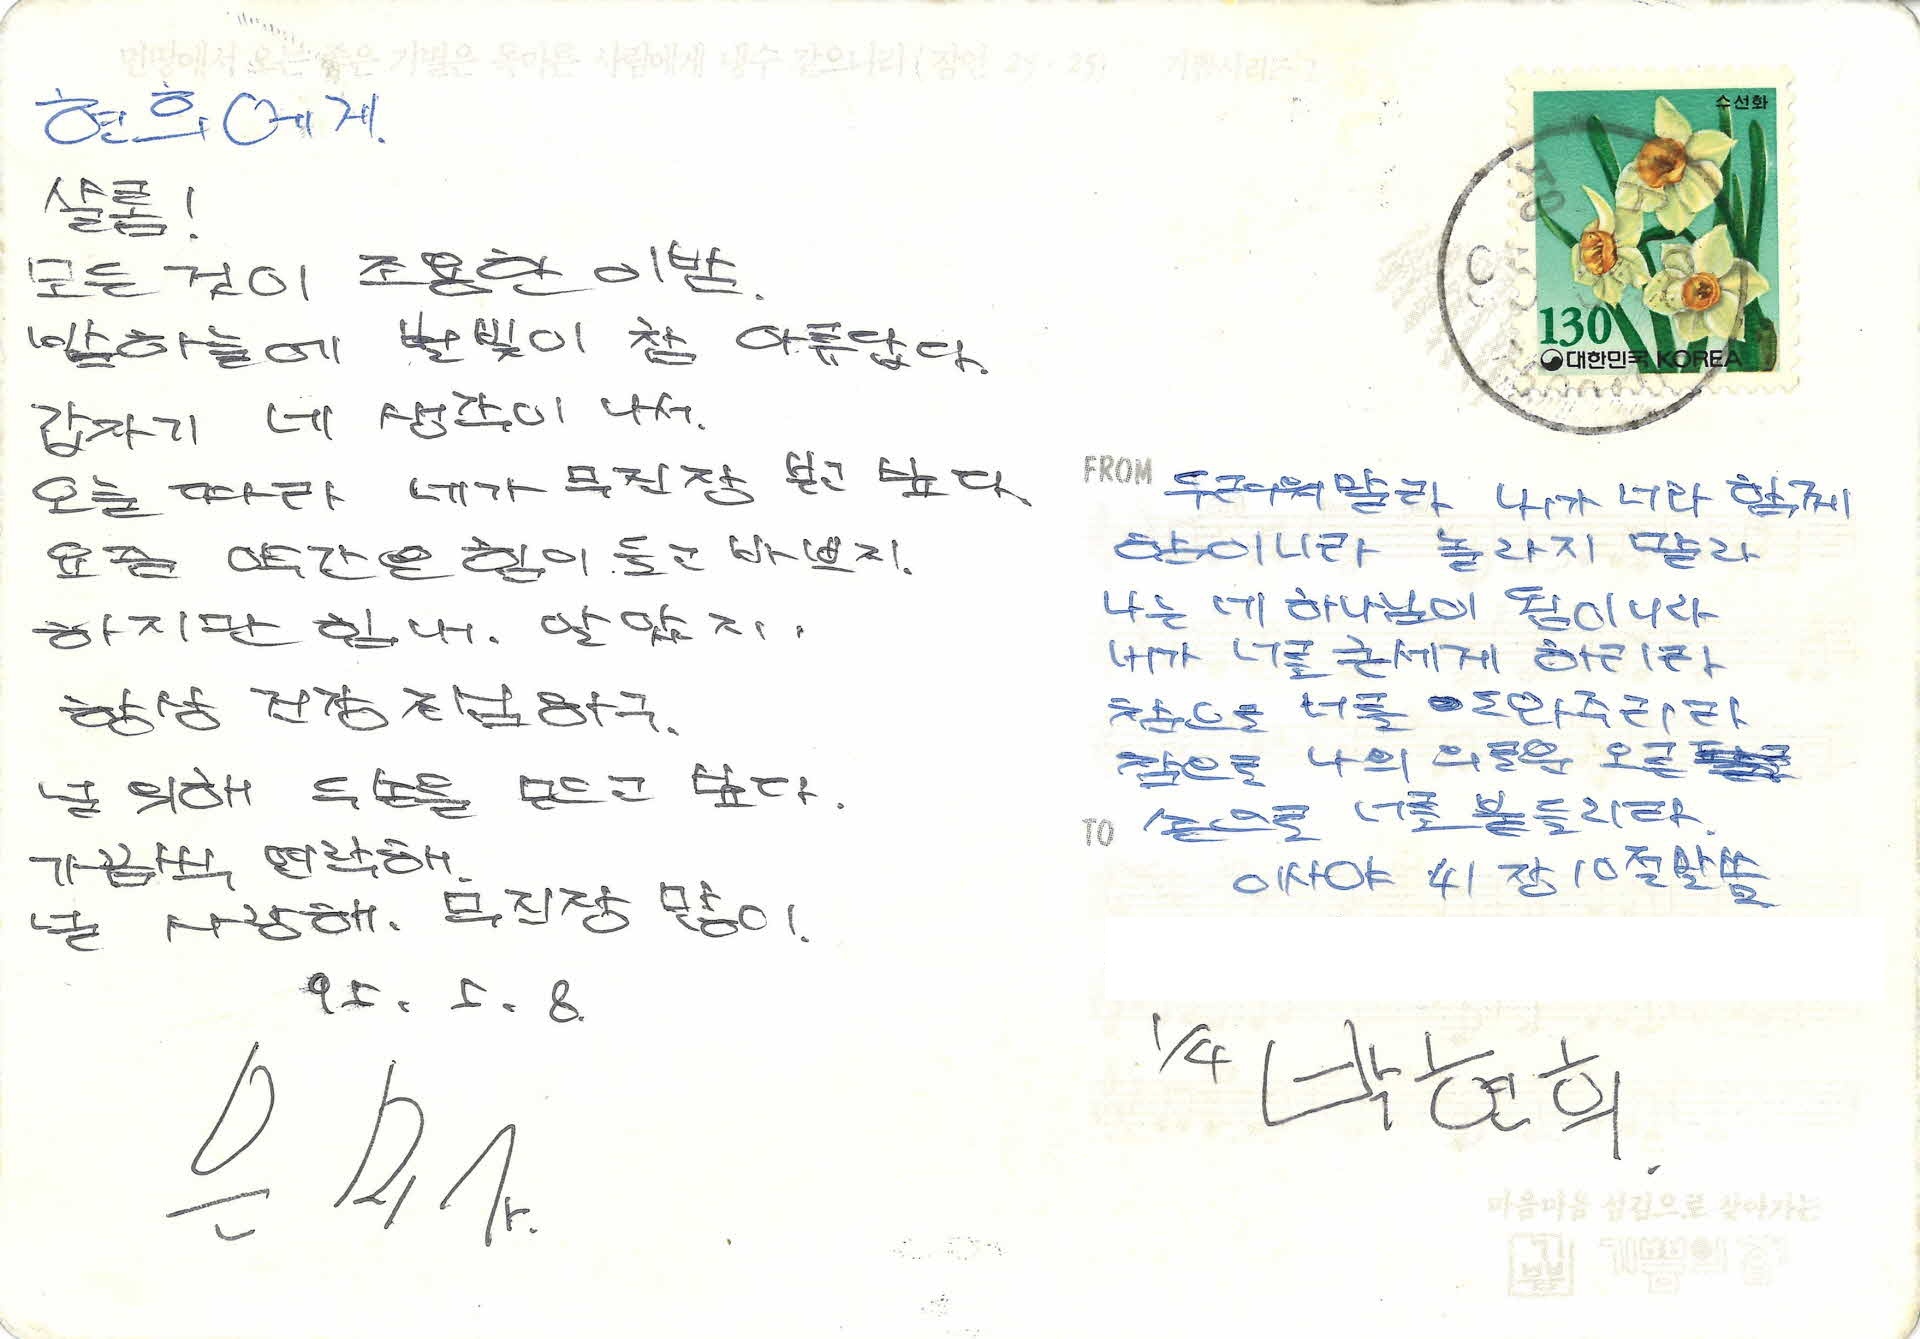 먼땅에서 오는 좋은 기별은 목마른 사람에게 냉수 같으니라 (잠언 25:25)
현희에게.
샬롬!
모든 것이 조용한 이밤.
밤하늘에 별빛이 참 아름답다.
갑자기 네 생각이 나서.
오늘 따라 네가 무진장 보고 싶다
요즘 약간은 힘이 들고 바쁘지.
하지만 힘내. 알았지.
항상 건강 조심하구.
널 위해 두손을 모으고 싶다.
가끔씩 연락해.
널 사랑해. 무진장 많이.
95. 5. 8.
수선화
130
대한민국 KOREA
FROM
두려워말라 내가 너와 함께
함이니라 놀라지 말라
나는 네 하나님이 됨이니라
내가 너를 굳세게 하리라
참으로 너를 도와주리라
참으로 나의 의로운 오른
손으로 너를 붙들리라.
TO
이사야 41장 10절말씀
1/4 박현희.
마음마음 섬김으로 찾아가는
기쁨의 집